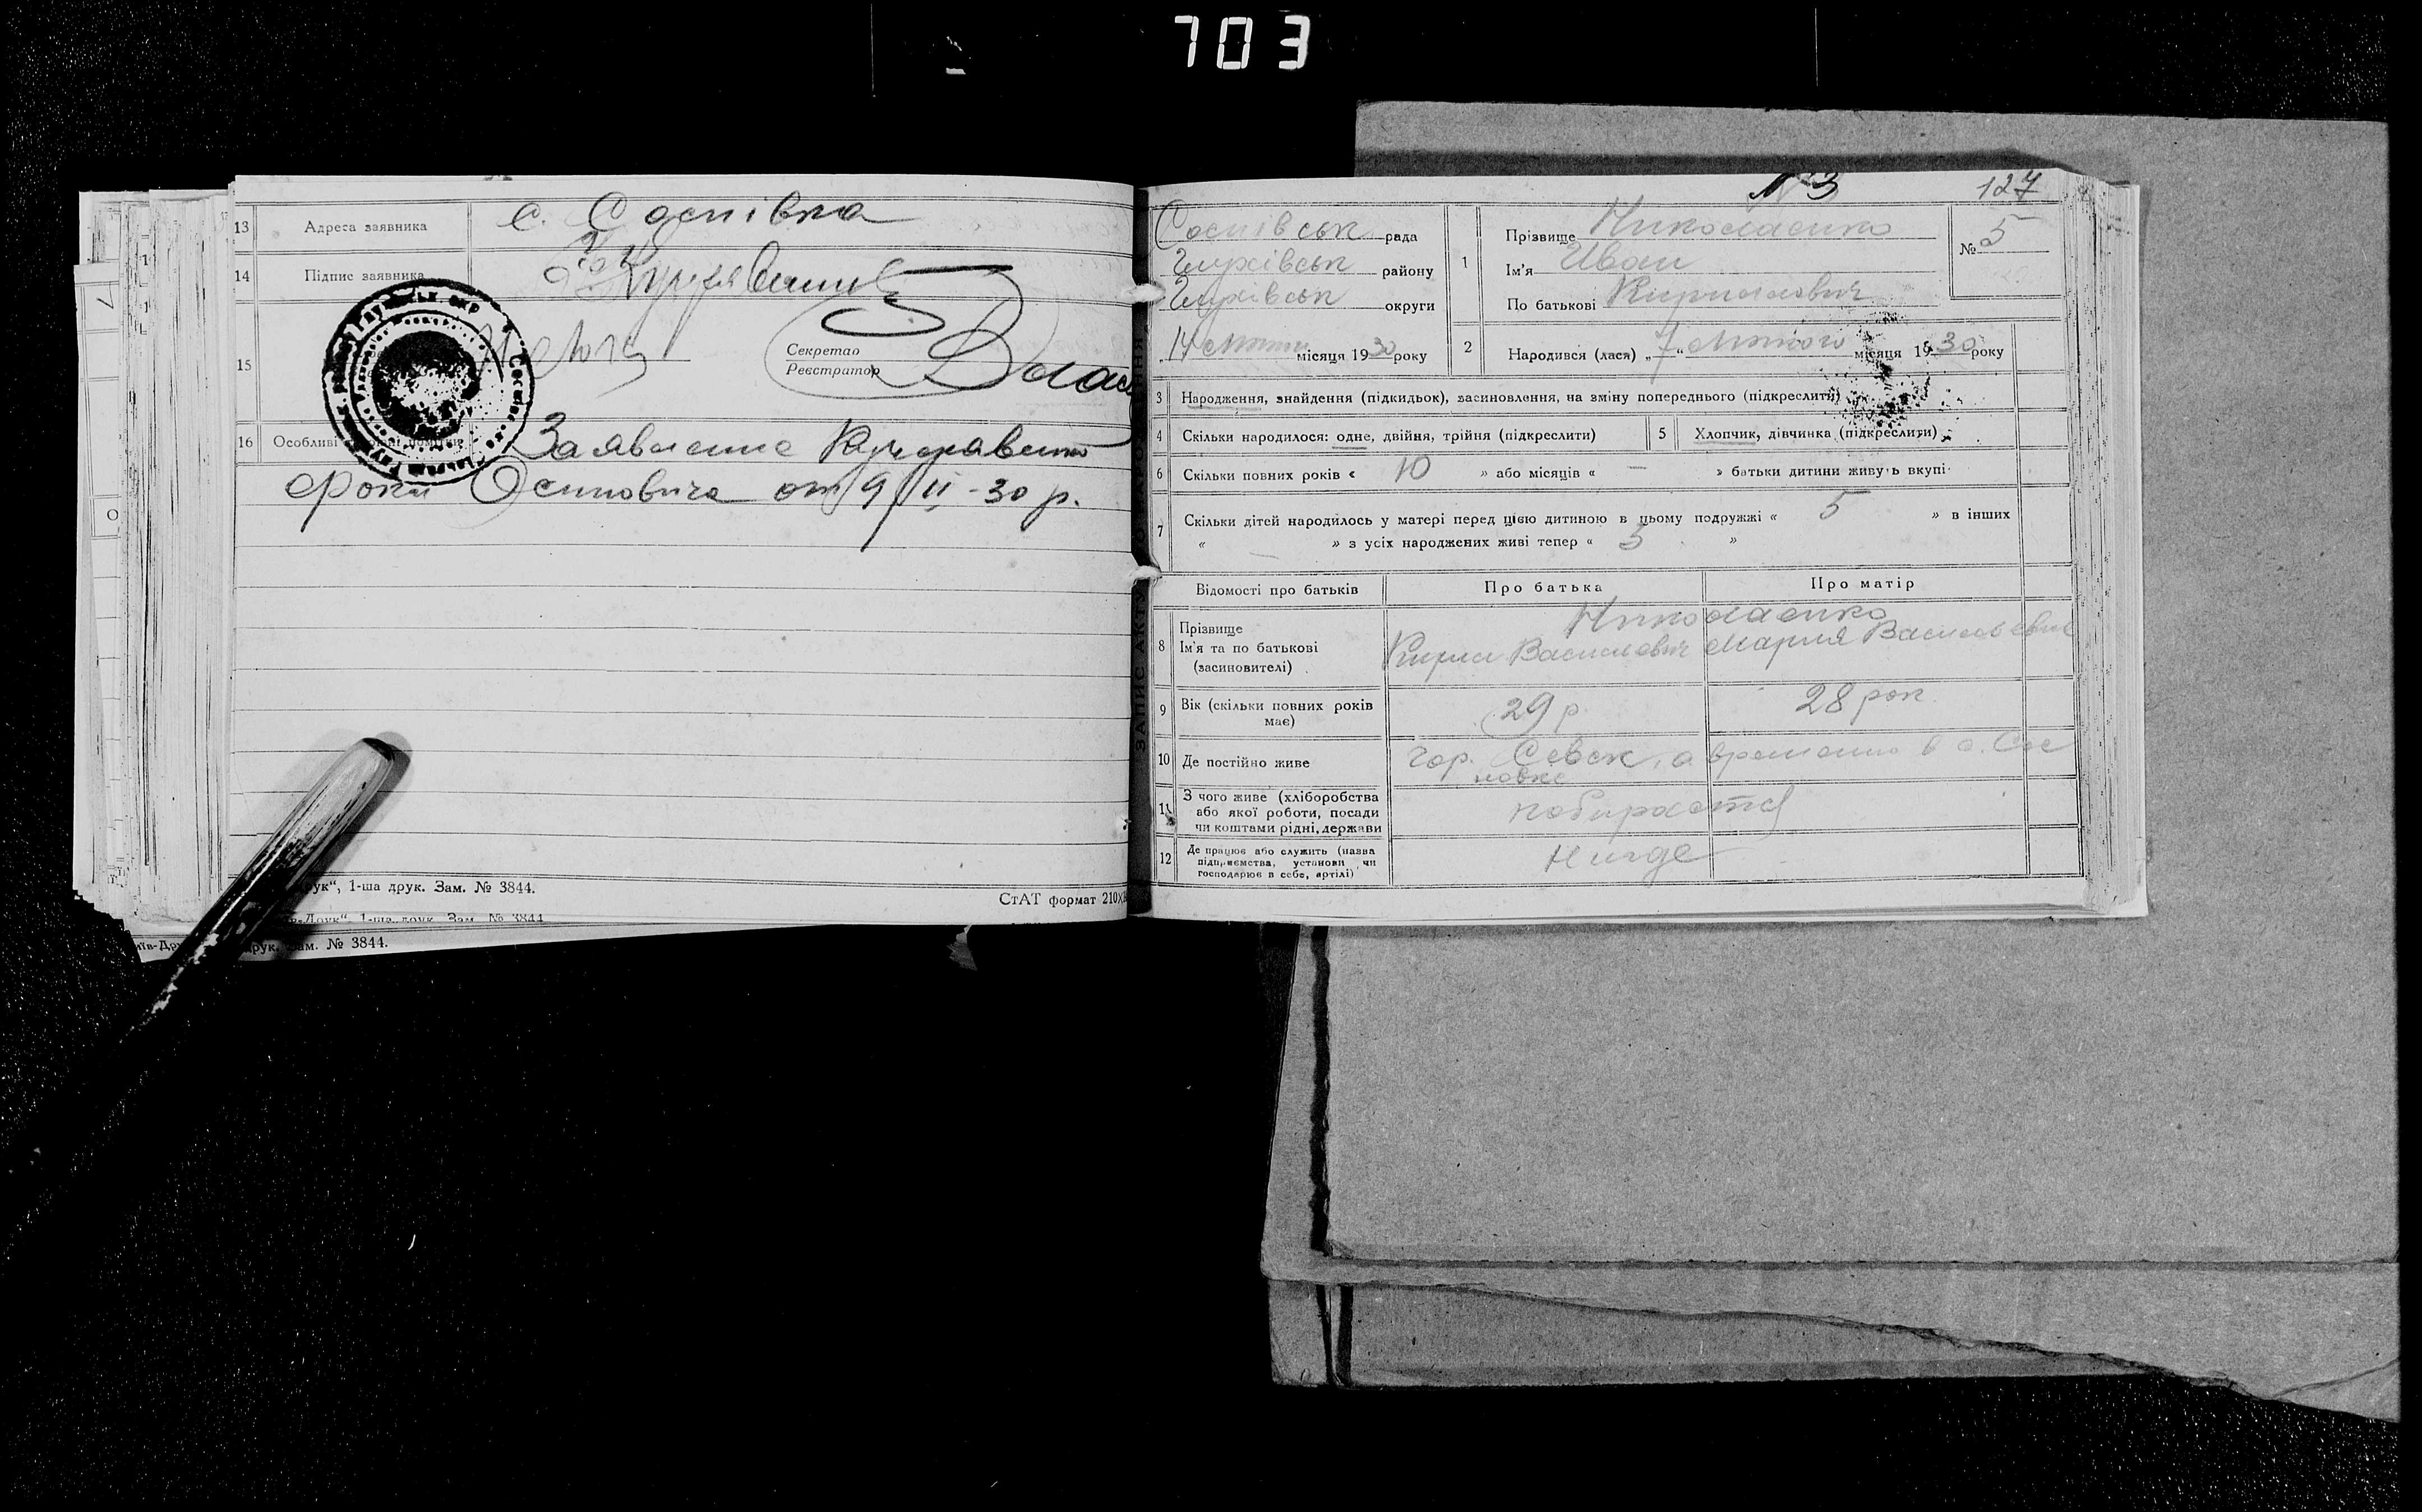 703
13 Адреса заявника с. Соснівка
14 Підпис заявника
15
Секретар
Реєстратор
16 Особливі Заявление
Осиповича от 9/II-30 р.
друк", 1-ша друк. Зам. № 3844.
СтАТ формат 210
-Друк" 1-ша друк. Зам. № 3844
друк. Зам. № 3844.
ЗАПИС АКТУ
№3 127
Соснівськ рада
Глухівськ району
Глухівськ округи
„14 місяця 1930 року
1 Прізвище Николаенко
Ім'я Иван
По батькові Кирилович
№ 5
2 Народився (лася) „7" Лютого місяця 1930 року
3 Народження, знайдення (підкидьок), засиновлення, на зміну попереднього (підкреслити)
4 Скільки народилося: одне, двійня, трійня (підкреслити) 5 Хлопчик, дівчинка (підкреслити)
6 Скільки повних років « 10 » або місяців « — » батьки дитини живуть вкупі
7 Скільки дітей народилось у матері перед цією дитиною в цьому подружжі « 5 » в інших
« — » з усіх народжених живі тепер « »
Відомості про батьків Про батька Про матір
8 Прізвище Николаенко
Ім'я та по батькові Кирил Василевич Мария
(засиновителі)
9 Вік (скільки повних років має) 29 р. 28 рок.
10 Де постійно живе гор. Севск, а временно в с. Сос
новке
11 З чого живе (хліборобства
або якої роботи, посади
чи коштами рідні, держави побирается
12 Де працює або служить (назва
підприємства, установи чи
господарює в себе, артілі) Нигде